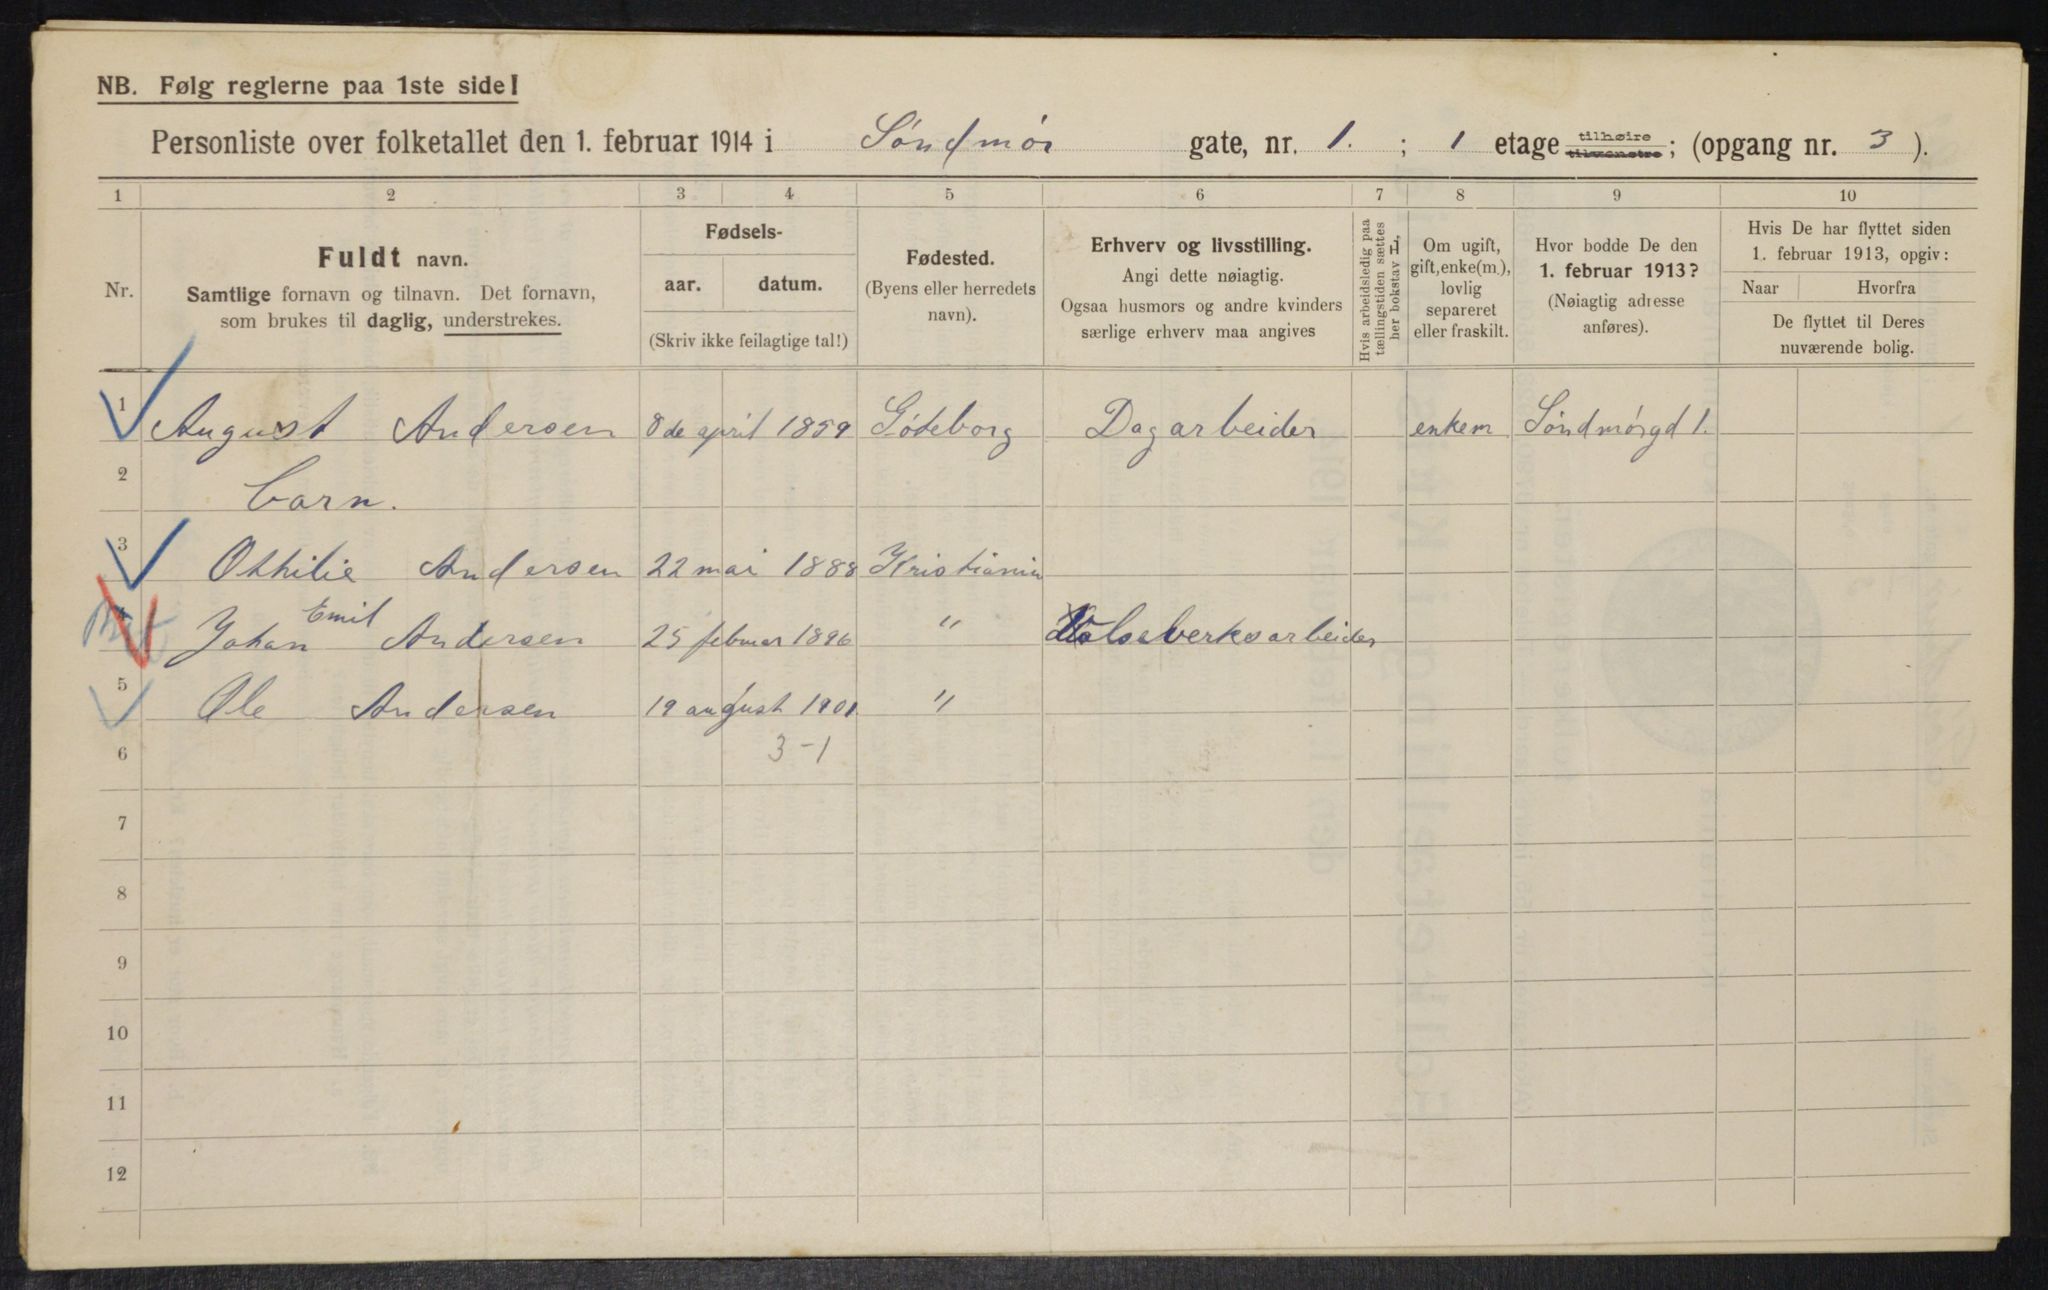 NB. Følg reglerne paa 1ste side!
Personliste over folketallet den 1. februar 1914 i Søndmør gate, nr. 1. ; 1 etage tilhøire tilvenstre; (opgang nr. 3).
1 2 3 4 5 6 7 8 9 10
Nr.
Fuldt navn.
Samtlige fornavn og tilnavn. Det fornavn,
som brukes til daglig, understrekes.
Fødsels-
aar. datum.
(Skriv ikke feilagtige tal!)
Fødested.
(Byens eller herredets
navn).
Erhverv og livsstilling.
Angi dette nøiagtig.
Ogsaa husmors og andre kvinders
særlige erhverv maa angives
Hvis arbeidsledig paa
tællingstiden sættes
her bokstav L,
Om ugift,
gift, enke(m.),
lovlig
separeret
eller fraskilt.
Hvor bodde De den
1. februar 1913?
(Nøiagtig adresse
anføres).
Hvis De har flyttet siden
1. februar 1913, opgiv:
Naar Hvorfra
De flyttet til Deres
nuværende bolig.
1 August Andersen 8de april 1859 Göteborg Dagarbeider enkem Søndmørgd 1.
2 barn.
3 Othilie Andersen 22 mai 1888 Kristiania
4 Johan Emil Andersen 25 februar 1896 " Valseverksarbeider
5 Ole Andersen 19 august 1901 "
6 3-1
7
8
9
10
11
12